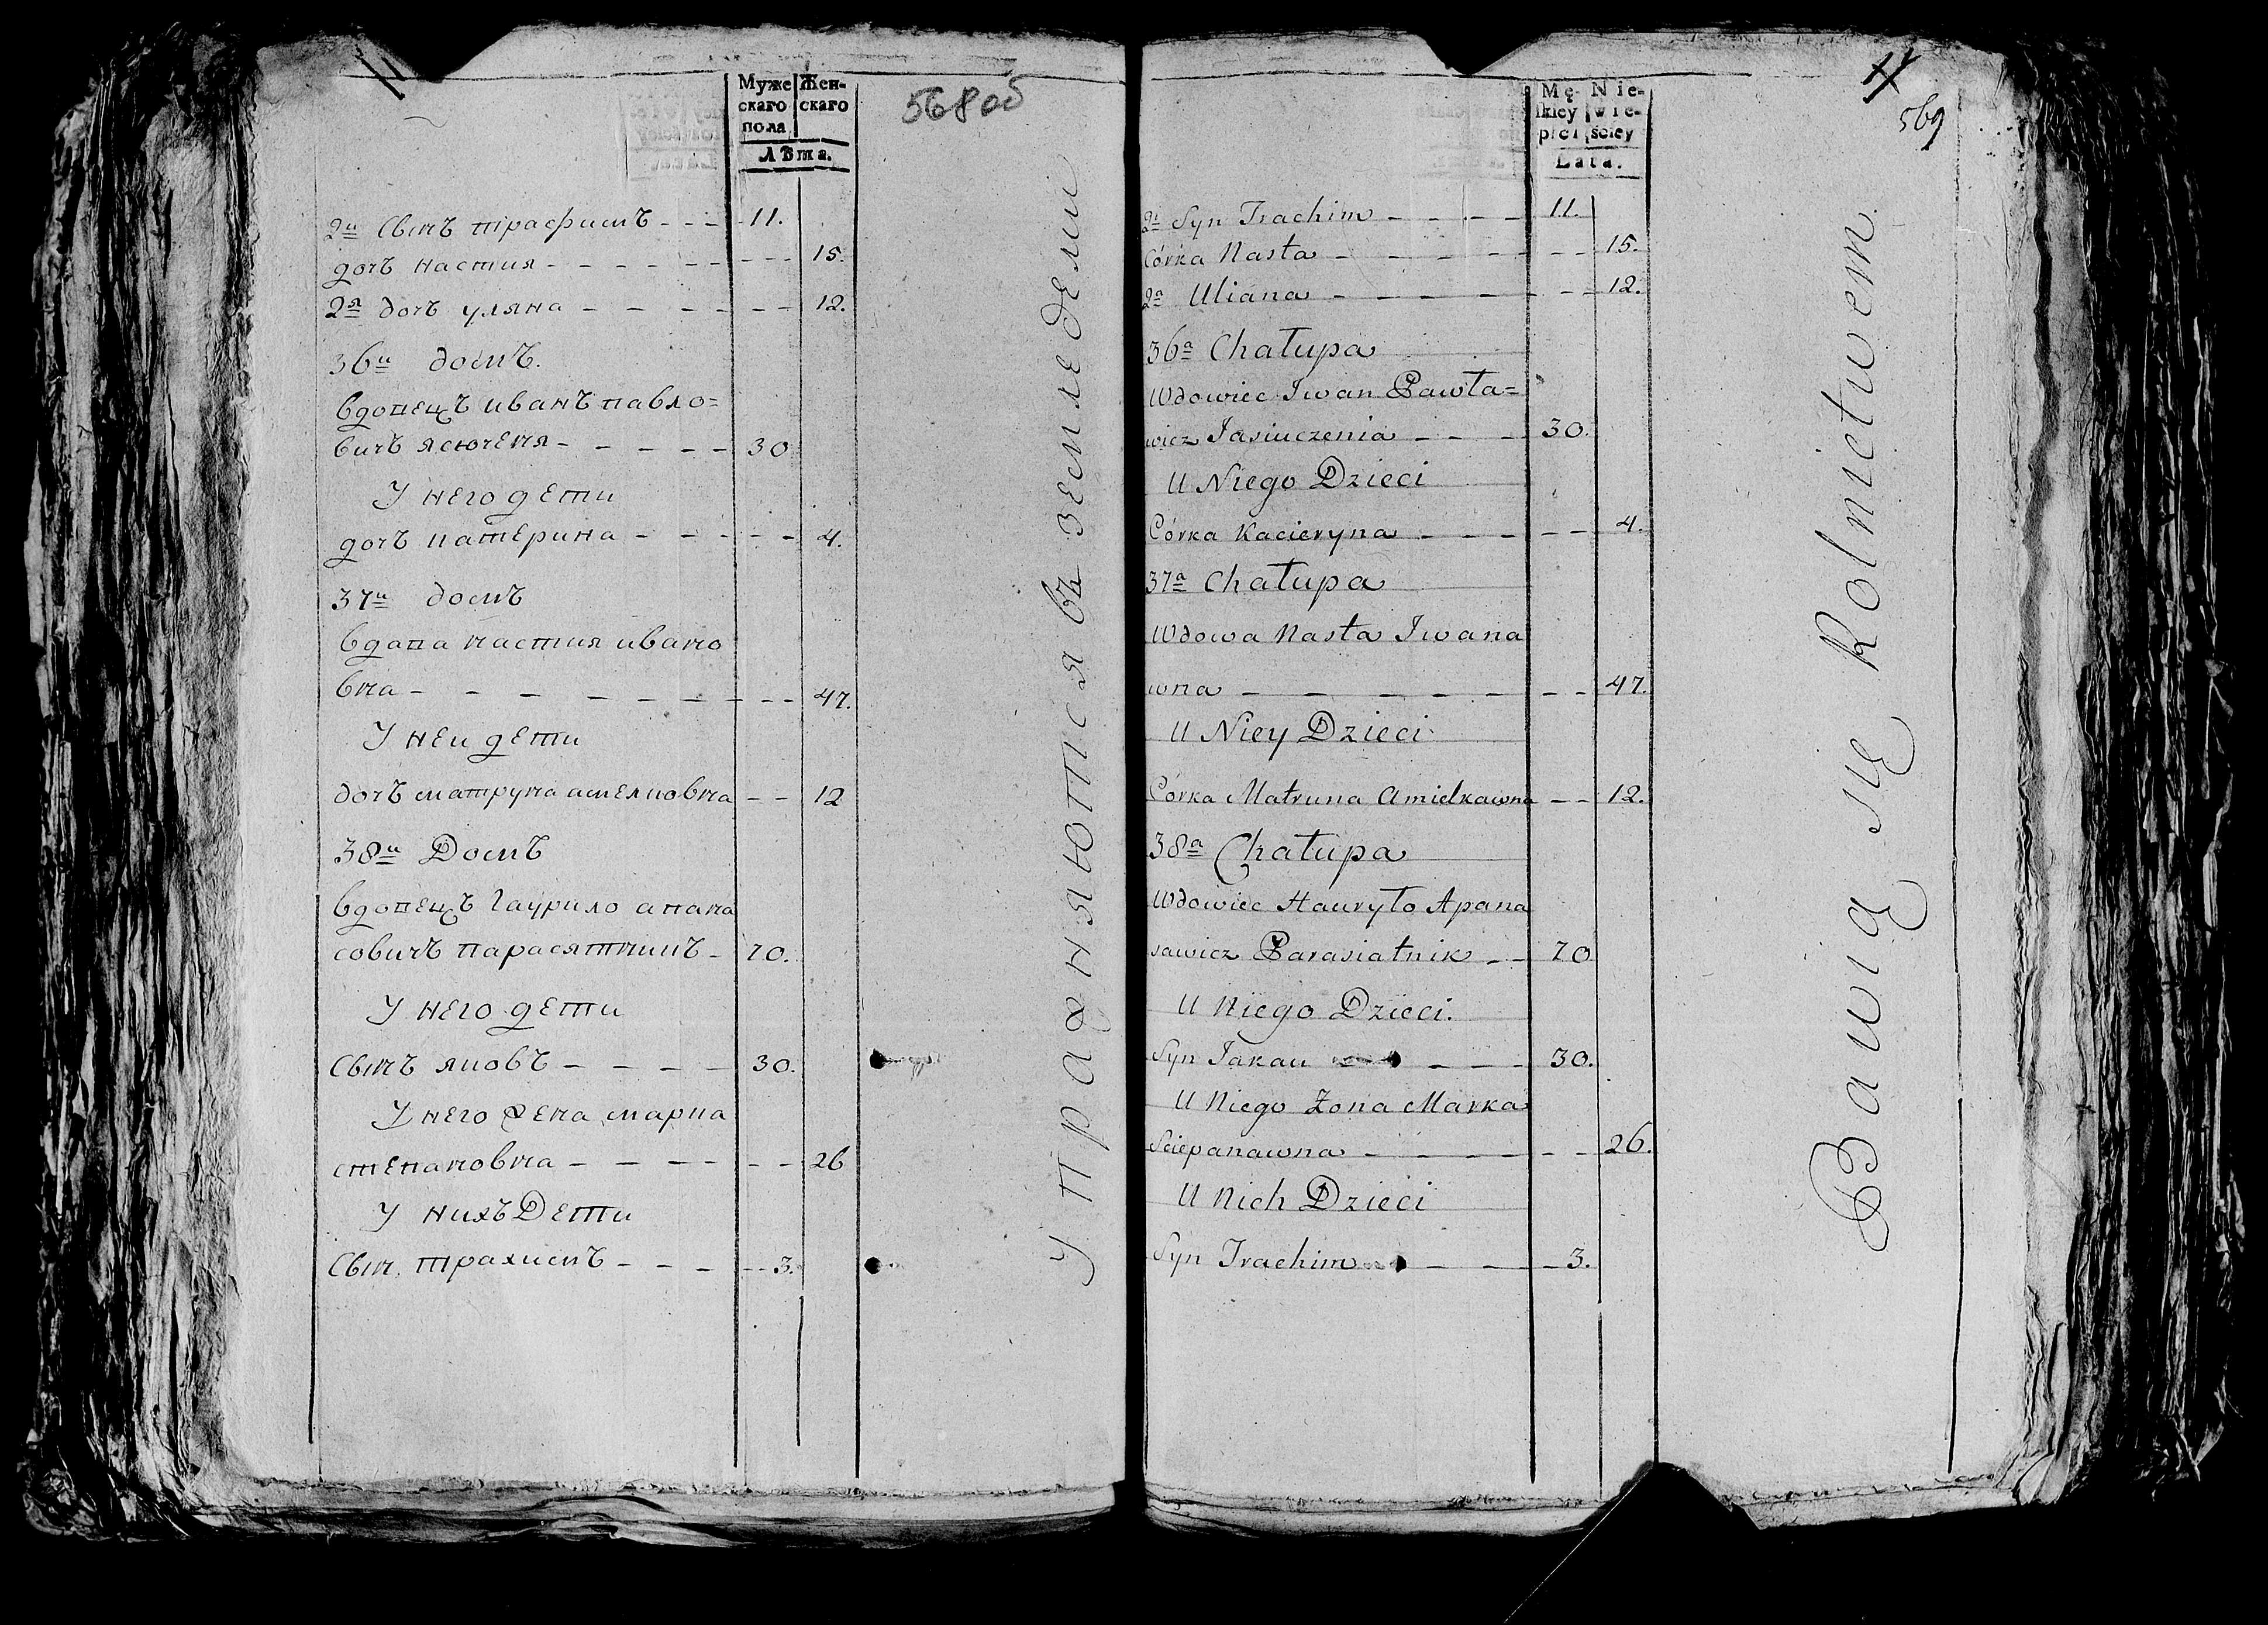 11
568 об
Муже
скаго
пола
Жен-
скаго
Лѣта.
2й сынъ трафимъ - - - 11.
дочь настия - - - - - - - - 15.
2я дочь уляна - - - - - - 12.
36й домъ.
вдовецъ иванъ павло=
вичъ ясюченя - - - - - 30
У него дети
дочь катерина - - - - - 4.
37й домъ
вдова настия ивано
вна - - - - - - - - 47.
У неи дети
дочь матруна амелковна - - 12
38й Домъ
вдовецъ гаурило апана
совичъ парасятникъ - 70.
У него дети
сынъ яковъ - - - - 30.
У него жена марка
степановна - - - - - - 26
У нихъ Дети
сын. трахимъ - - - - - 3.
Упражняютса въ земледелии
11
569
Mę-
skiey
płci
Nie-
wie-
ściey
Lata.
2i Syn Trachim - - - - 11.
Córka Nasta - - - - - - - 15.
2a Uliana - - - - - - - 12.
36a Chałupa
Wdowiec Iwan Pawła=
wicz Jasiuczenia - - - 30.
U Niego Dzieci
Córka Kacieryna - - - - - 4.
37a Chałupa
Wdowa Nasta Iwana
wna - - - - - - - 47.
U Niey Dzieci
Córka Matruna Amielkawna - - 12.
38a Chałupa
Wdowiec Hauryło Apana
sawicz Parasiatnik - - 70
U Niego Dzieci.
Syn Jakau - - - 30.
U Niego Żona Marka
Sciepanawna - - - - - - 26.
U Nich Dzieci
Syn Trachim - - - 3.
Bawią się Rolnictwem.